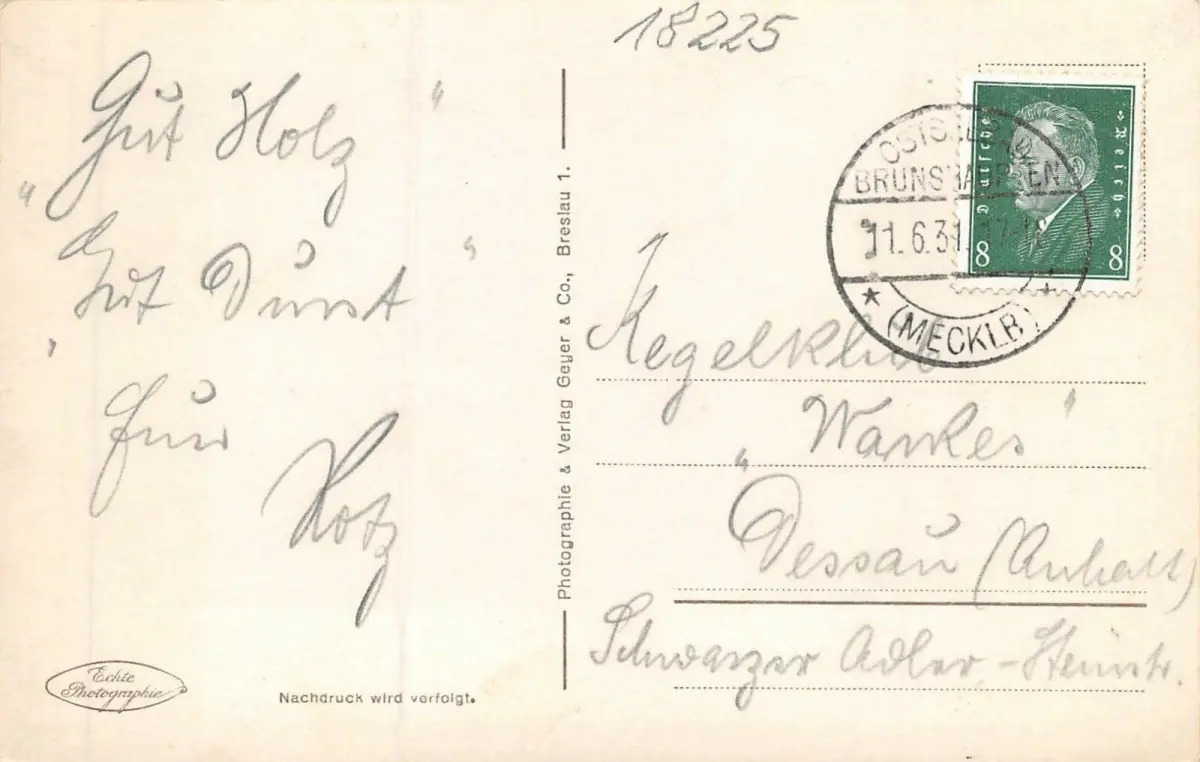 18225
"Gut Holz"
"Gut Durst"
Euer
Kotz
Echte
Photographie
Nachdruck wird verfolgt.
Photographie & Verlag Geyer & Co., Breslau 1.
Deutsches Reich
8 8
BRUNSHAUPTEN
11.6.31.
(MECKLB)
Kegelklub
"Wankes"
Dessau (Anhalt)
Schwarzer Adler - Steinstr.